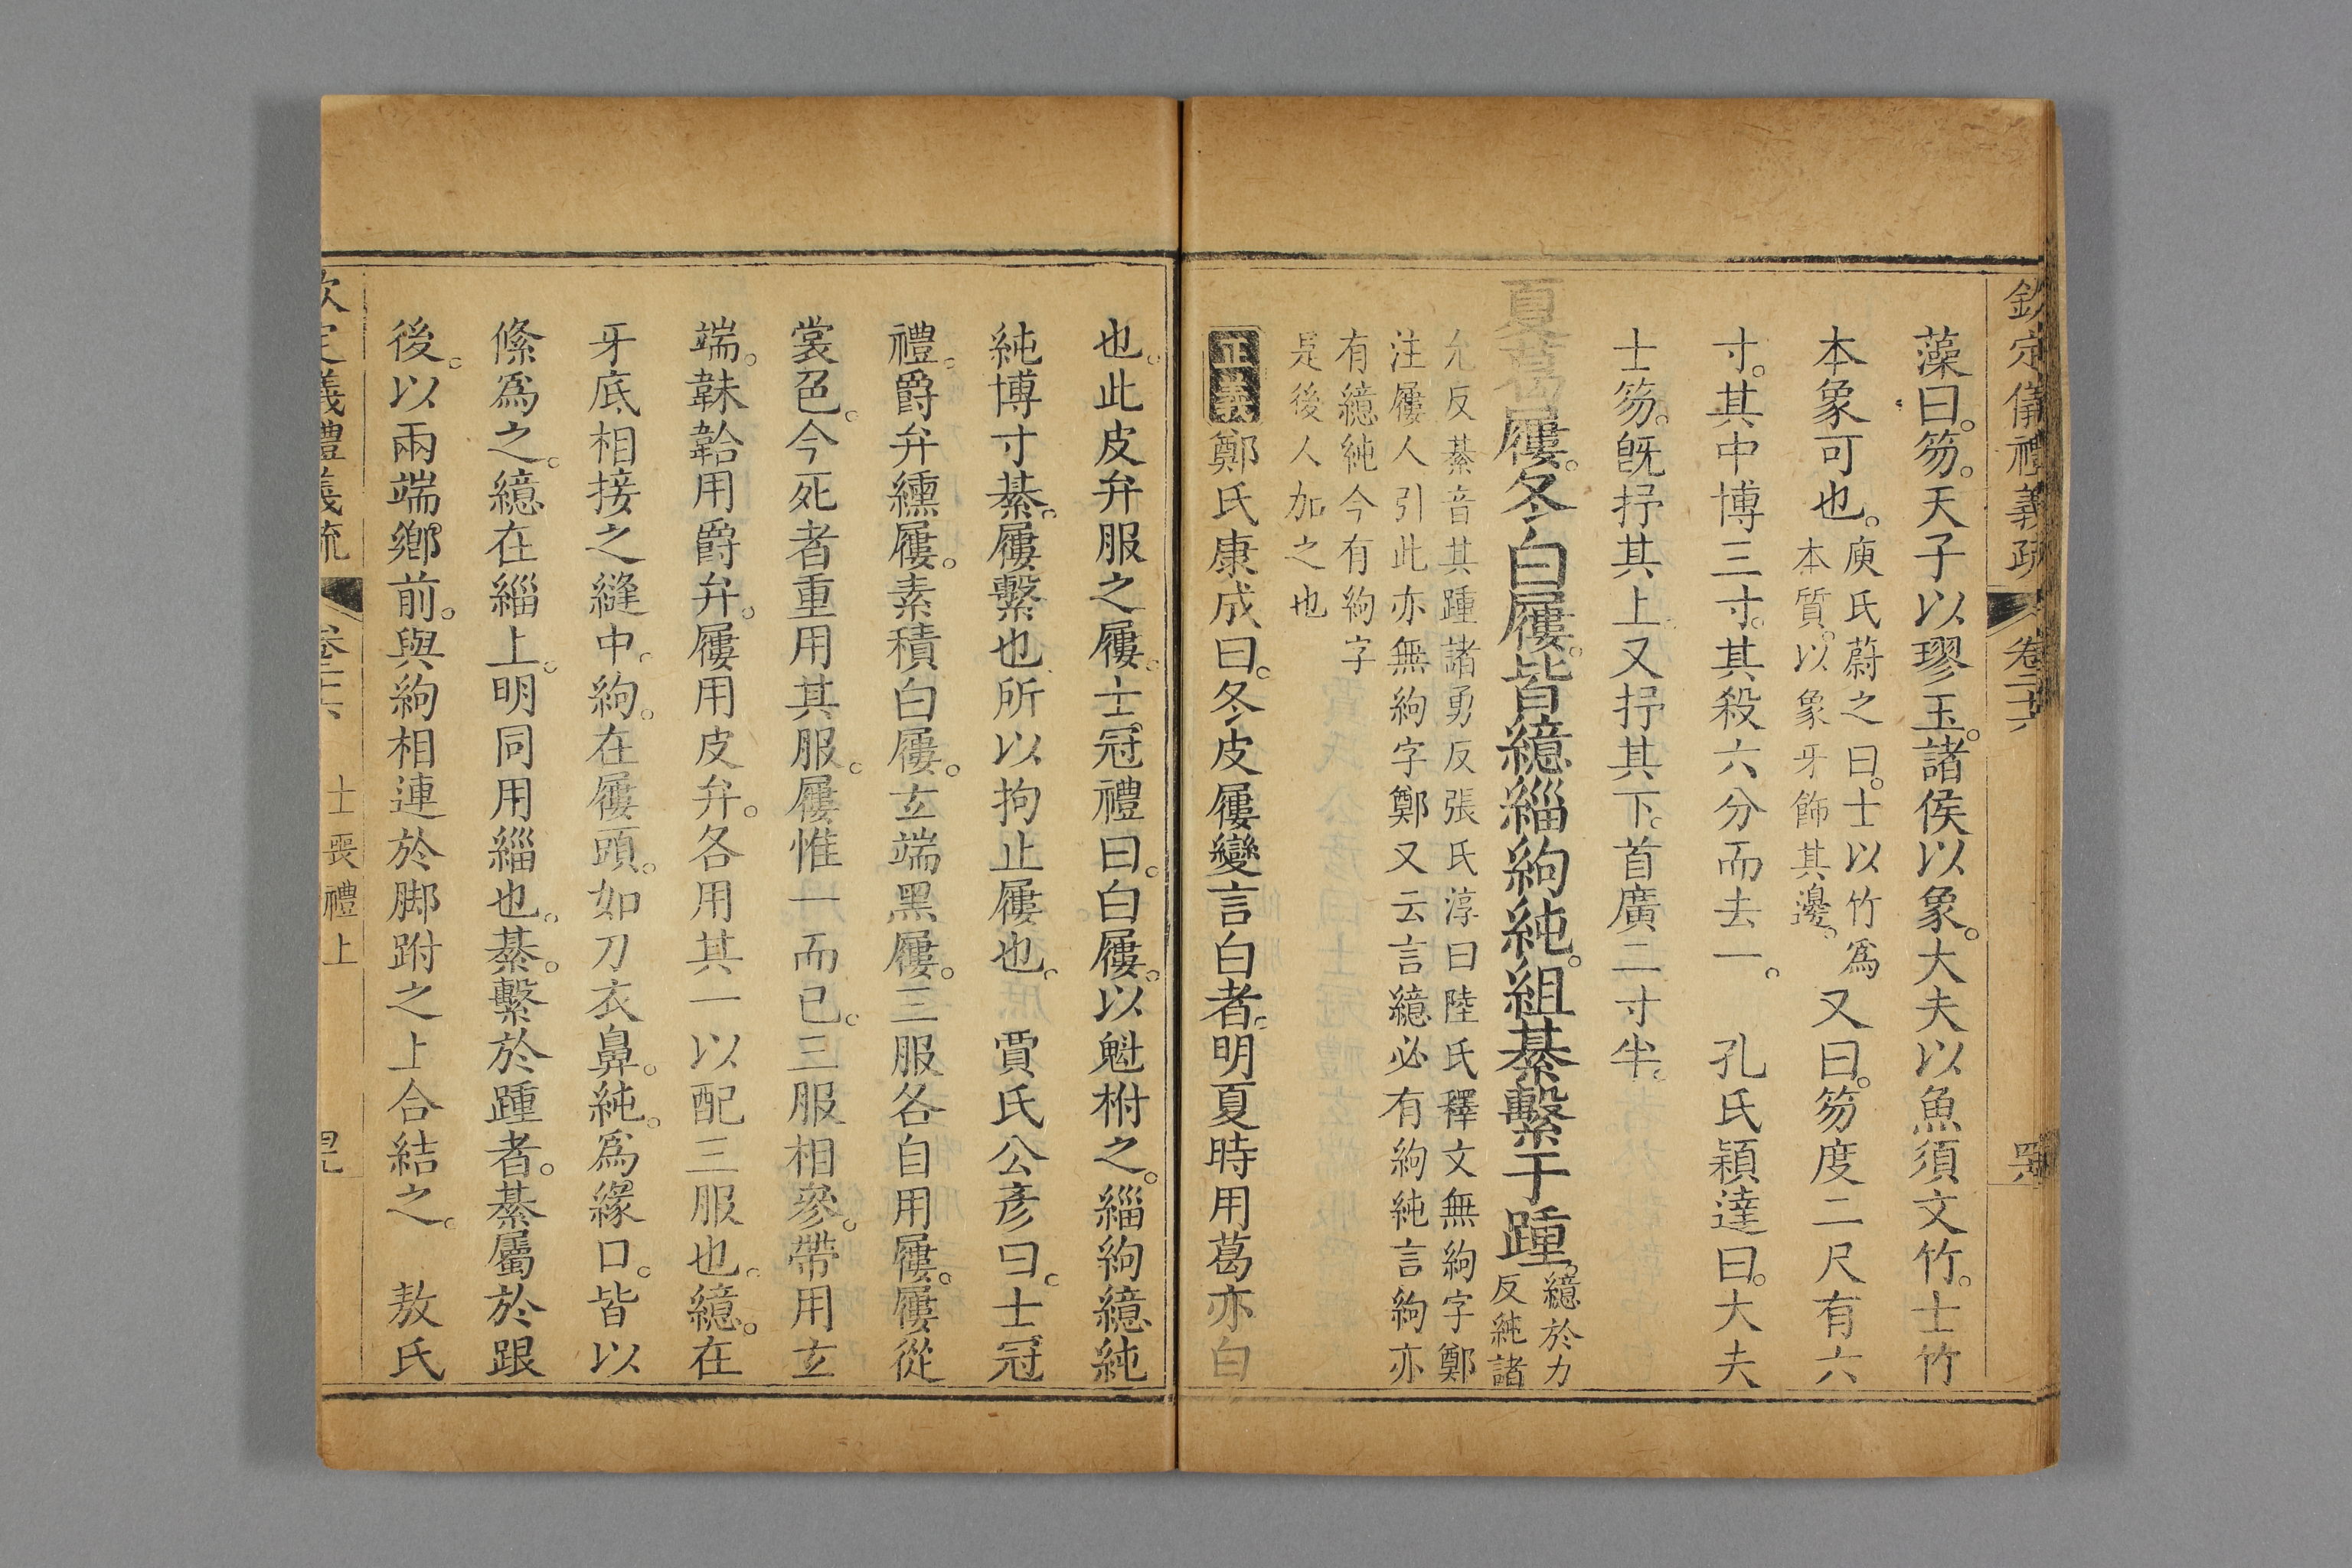 欽定儀禮義疏 卷二十六 哭
藻曰。笏。天子以璆玉。諸侯以象。大夫以魚須文竹。士竹
本象可也。庾氏蔚之曰。士以竹爲本質。以象牙飾其邊。又曰。笏度二尺有六
寸。其中博三寸。其殺六分而去一。 孔氏穎達曰。大夫
士笏。旣抒其上。又抒其下。首廣二寸半。
夏葛屨。冬白屨。皆繶緇絇純。組綦繫于踵。繶於力反純諸
允反綦音其踵諸勇反張氏淳曰陸氏釋文無絇字鄭
注屨人引此亦無絇字鄭又云言繶必有絇純言絇亦
有繶純今有絇字
是後人加之也
正義鄭氏康成曰。冬皮屨變言白者。明夏時用葛亦白
也。此皮弁服之屨。士冠禮曰。白屨。以魁柎之。緇絇繶純
純博寸綦。屨繫也所以拘止屨也。 賈氏公彥曰。士冠
禮。爵弁纁屨。素積白屨。玄端黑屨。三服各自用屨。屨從
裳色。今死者重用其服。屨惟一而已。三服相參。帶用玄
端。韎韐用爵弁。屨用皮弁。各用其一以配三服也。繶。在
牙底相接之縫中。絇。在屨頭。如刀衣鼻。純。爲緣口。皆以
絛爲之。繶在緇上。明同用緇也。綦。繫於踵者。綦屬於跟
後。以兩端鄉前。與絇相連於脚跗之上合結之。 敖氏
欽定儀禮義疏 卷二十六 士喪禮上